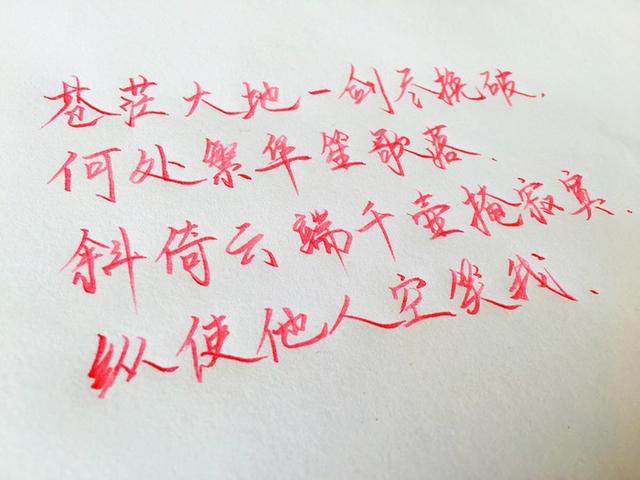 苍茫大地一剑尽挽破.
何处繁华笙歌落.
斜倚云端千壶掩寂寞.
纵使他人空笑我.